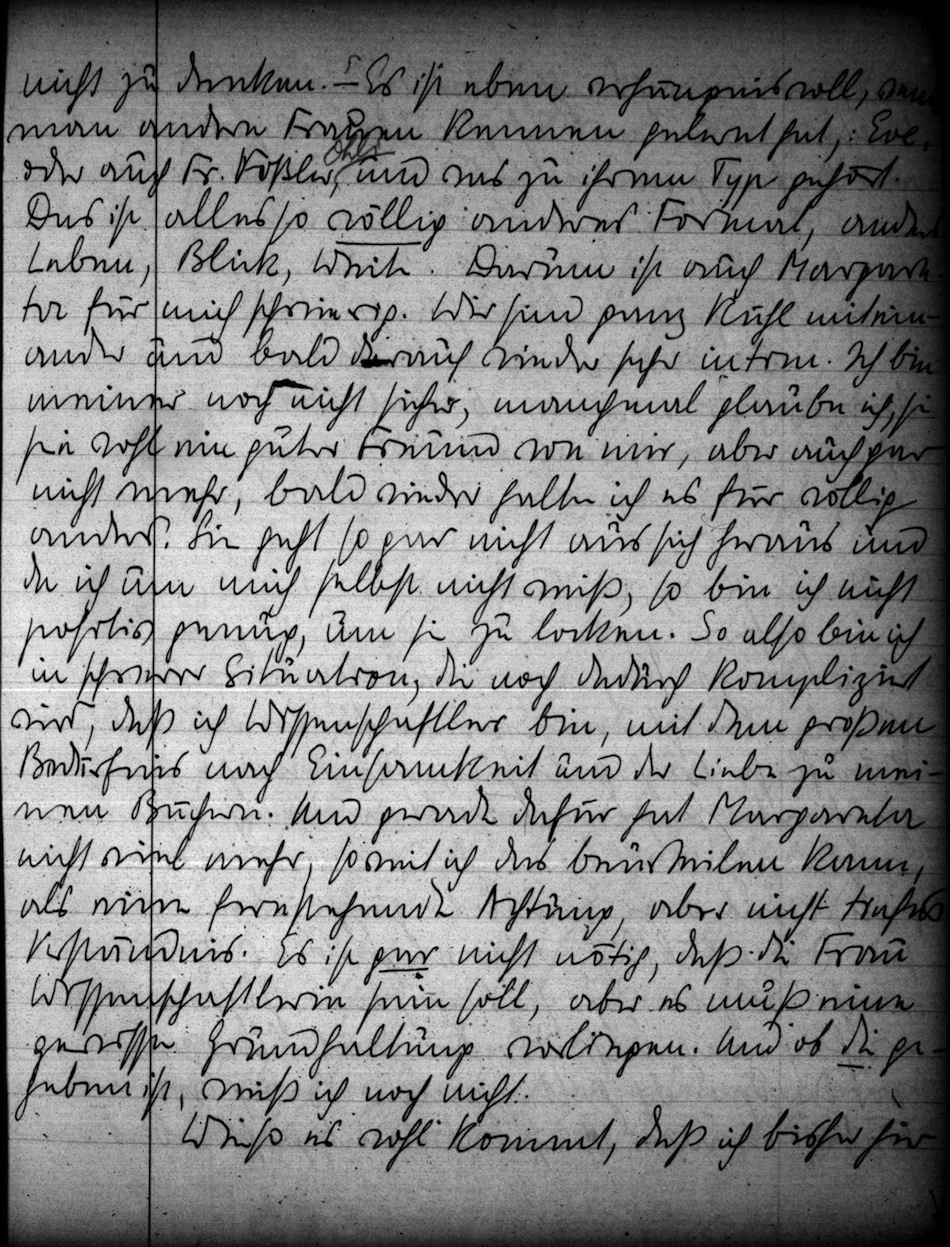 nicht zu denken. – Es ist eben verhängnisvoll, wenn
man andere Frauen kennen gelernt hat, : Eve,
oder auch Fr. Voßler, und was zu ihrem Typ gehört.
Das ist alles so völlig anderes Format, anderes
Leben, Blick, Weite. Darum ist auch Margare-
ta für mich schwierig. Wir sind ganz kühl mitein-
ander und bald darauf wieder sehr intim. Ich bin
meiner noch nicht sicher, manchmal glaube ich, sie
sei wohl ein guter Freund von mir, aber auch gar
nicht mehr, bald wieder halte ich es für völlig
anders. Sie geht so gar nicht aus sich heraus und
da ich um mich selbst nicht weiß, so bin ich nicht
genug, um sie zu locken. So also bin ich
in schwerer Situation, die noch dadurch kompliziert
wird, daß ich Wissenschaftler bin, mit dem großen
Bedürfnis nach Einsamkeit und der Liebe zu mei-
nen Büchern. Und gerade dafür hat Margareta
nicht viel mehr, soweit ich das beurteilen kann,
als eine fernstehende Achtung, aber nicht tiefes
Verständnis. Es ist gar nicht nötig, daß die Frau
Wissenschaftlerin sein soll, aber es muß eine
gewisse Grundhaltung vorliegen. Und ob die ge-
geben ist, weiß ich noch nicht.
Wieso es wohl kommt, daß ich bisher hier